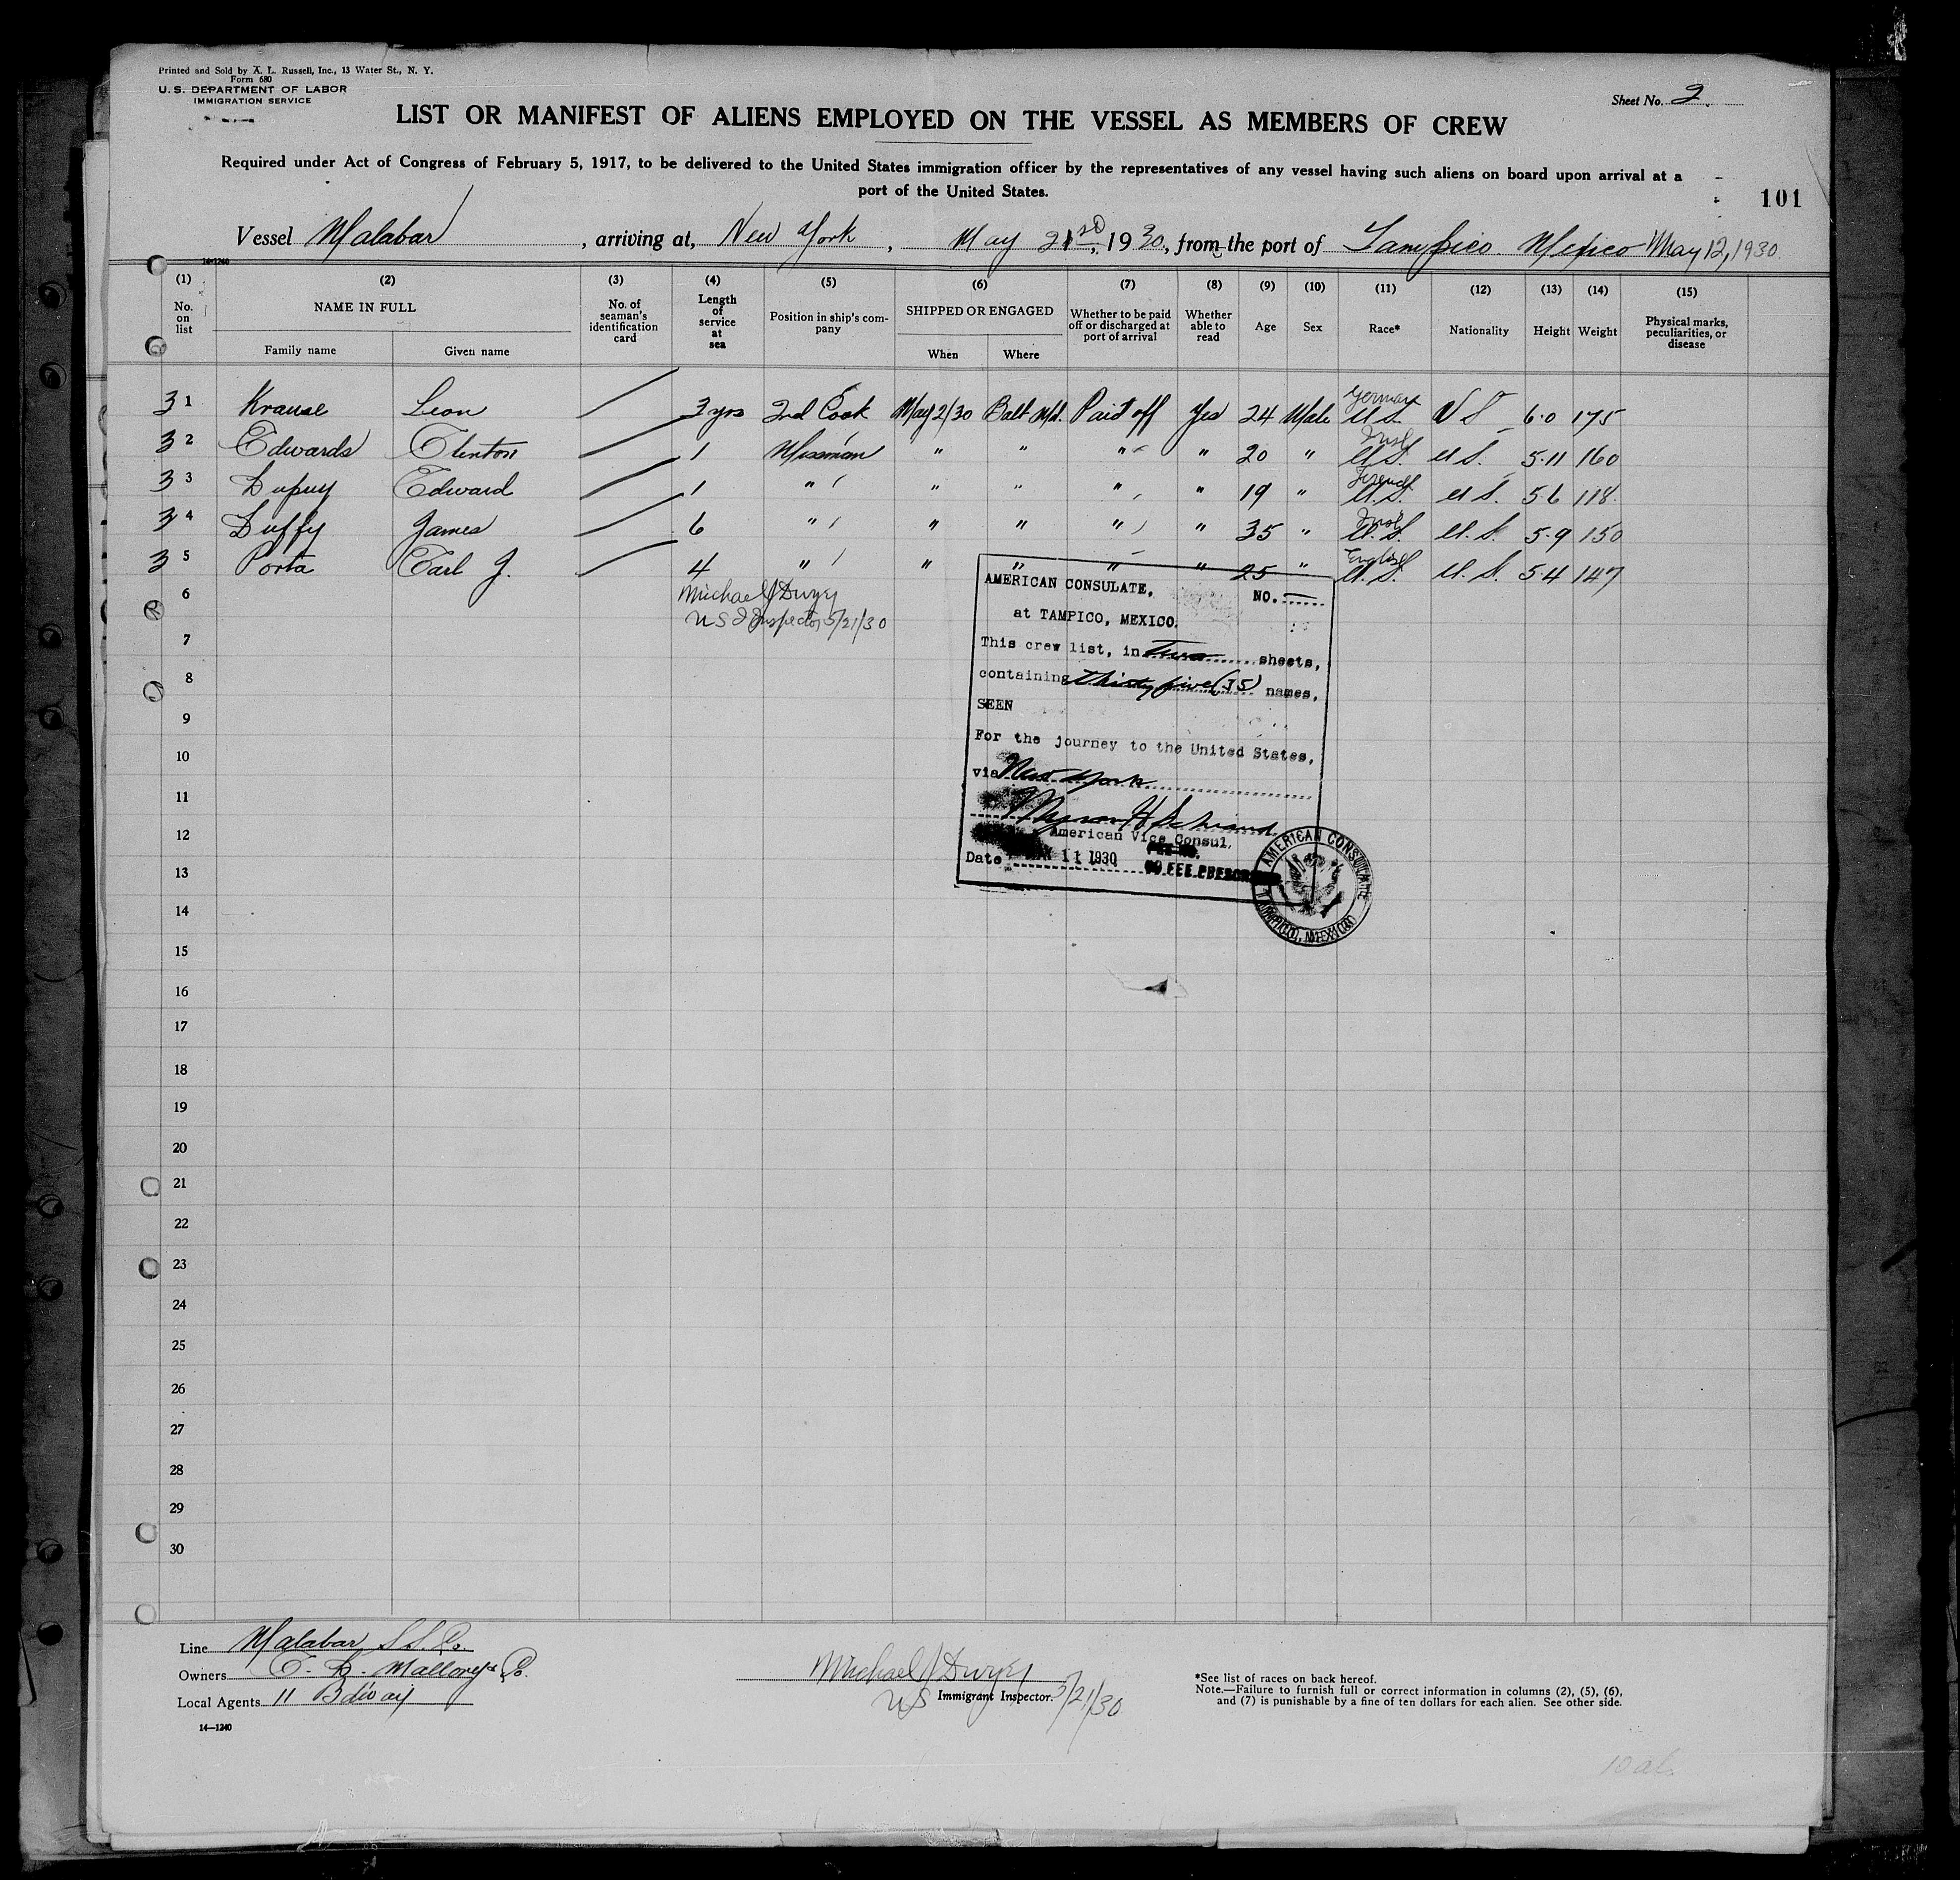 Printed and Sold by A. L. Russell, Inc., 13 Water St., N. Y.
Form 680
U. S. DEPARTMENT OF LABOR
IMMIGRATION SERVICE
Sheet No. 2
LIST OR MANIFEST OF ALIENS EMPLOYED ON THE VESSEL AS MEMBERS OF CREW
Required under Act of Congress of February 5, 1917, to be delivered to the United States immigration officer by the representatives of any vessel having such aliens on board upon arrival at a
port of the United States.
101
Vessel Malabar, arriving at, New York, May 21st, 1930, from the port of Tampico Mexico May 12, 1930
14-1240
(1) (2) (3) (4) (5) (6) (7) (8) (9) (10) (11) (12) (13) (14) (15)
No. on list
NAME IN FULL
Family name Given name
No. of seaman's identification card
Length of service at sea
Position in ship's company
SHIPPED OR ENGAGED
When Where
Whether to be paid off or discharged at port of arrival
Whether able to read
Age
Sex
Race*
Nationality
Height
Weight
Physical marks, peculiarities, or disease
31 Krause Leon 3 yrs 2nd Cook May 2/30 Balt Md. Paid off Yes 24 Male German U.S. U S 6.0 175
32 Edwards Clinton 1 Messman " " " " 20 " Irish U.S. U S. 5.11 160
33 Dupuy Edward 1 " " " " " 19 " French U.S. U S. 5.6 118
34 Duffy James 6 " " " " " 35 " Irish U.S. U. S. 5.9 150
35 Porta Earl J. 4 " " " " " 25 " English U.S. U. S. 5.4 147
6 Michael J Dwyer
US I Inspector 5/21/30
7
8
9
10
11
12
13
14
15
16
17
18
19
20
21
22
23
24
25
26
27
28
29
30
AMERICAN CONSULATE, NO.
at TAMPICO, MEXICO.
This crew list, in Two sheets,
containing thirty five (35) names,
SEEN
For the journey to the United States,
via New York
American Vice Consul.
Date 11 1930
NO FEE PRESCRIBED
AMERICAN CONSULATE
TAMPICO, MEXICO
Line Malabar S.S. Co.
Owners C. D. Mallory & Co.
Local Agents 11 Bdway
14—1240
Michael J Dwyer
US Immigrant Inspector. 5/21/30
*See list of races on back hereof.
Note.—Failure to furnish full or correct information in columns (2), (5), (6),
and (7) is punishable by a fine of ten dollars for each alien. See other side.